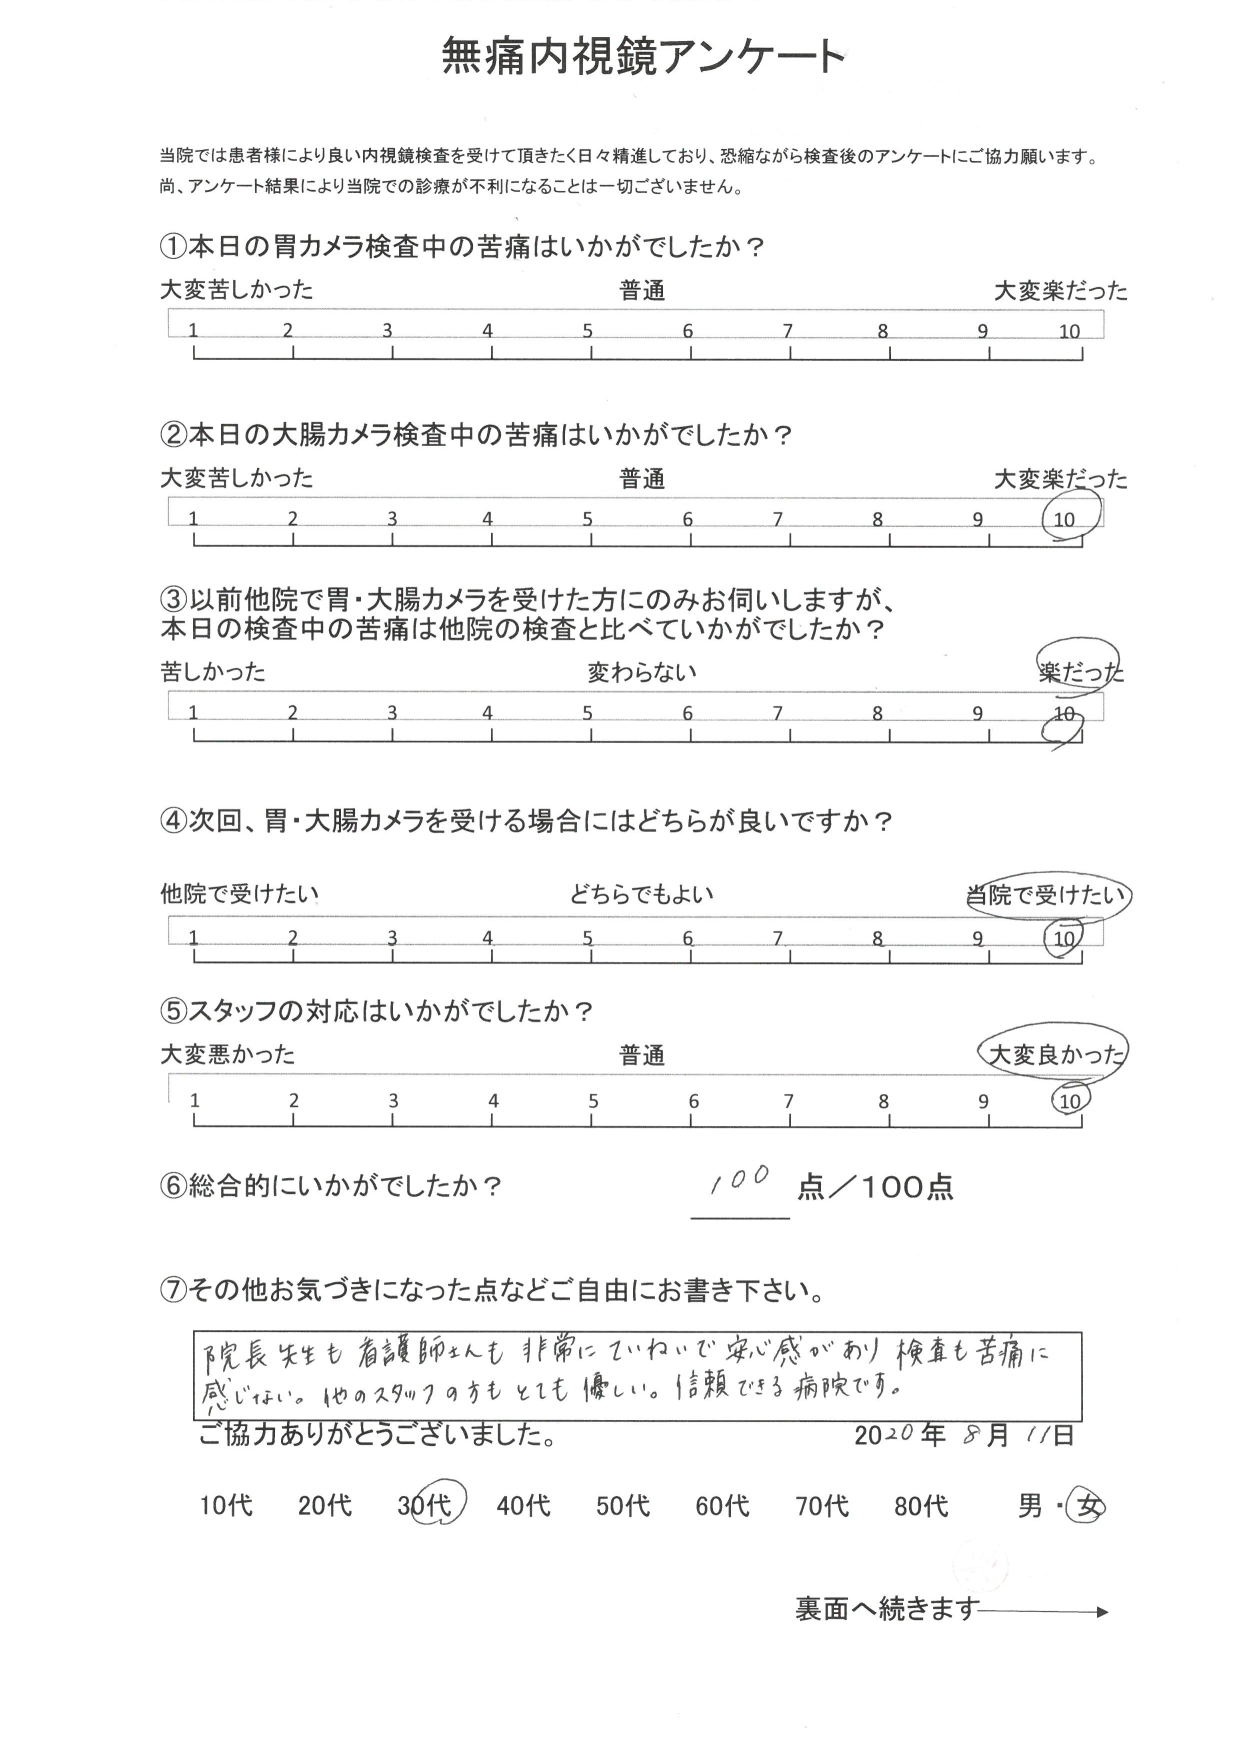 無痛内視鏡アンケート
当院では患者様により良い内視鏡検査を受けて頂きたく日々精進しており、恐縮ながら検査後のアンケートにご協力願います。
尚、アンケート結果により当院での診療が不利になることは一切ございません。
①本日の胃カメラ検査中の苦痛はいかがでしたか？
大変苦しかった 普通 大変楽だった
1 2 3 4 5 6 7 8 9 10
②本日の大腸カメラ検査中の苦痛はいかがでしたか？
大変苦しかった 普通 大変楽だった
1 2 3 4 5 6 7 8 9 10
③以前他院で胃・大腸カメラを受けた方にのみお伺いしますが、
本日の検査中の苦痛は他院の検査と比べていかがでしたか？
苦しかった 変わらない 楽だった
1 2 3 4 5 6 7 8 9 10
④次回、胃・大腸カメラを受ける場合にはどちらが良いですか？
他院で受けたい どちらでもよい 当院で受けたい
1 2 3 4 5 6 7 8 9 10
⑤スタッフの対応はいかがでしたか？
大変悪かった 普通 大変良かった
1 2 3 4 5 6 7 8 9 10
⑥総合的にいかがでしたか？ 100 点／100点
⑦その他お気づきになった点などご自由にお書き下さい。
院長先生も看護師さんも非常にていねいで安心感があり検査も苦痛に
感じない。他のスタッフの方もとても優しい。信頼できる病院です。
ご協力ありがとうございました。 2020年 8月 11日
10代 20代 30代 40代 50代 60代 70代 80代 男・女
裏面へ続きます